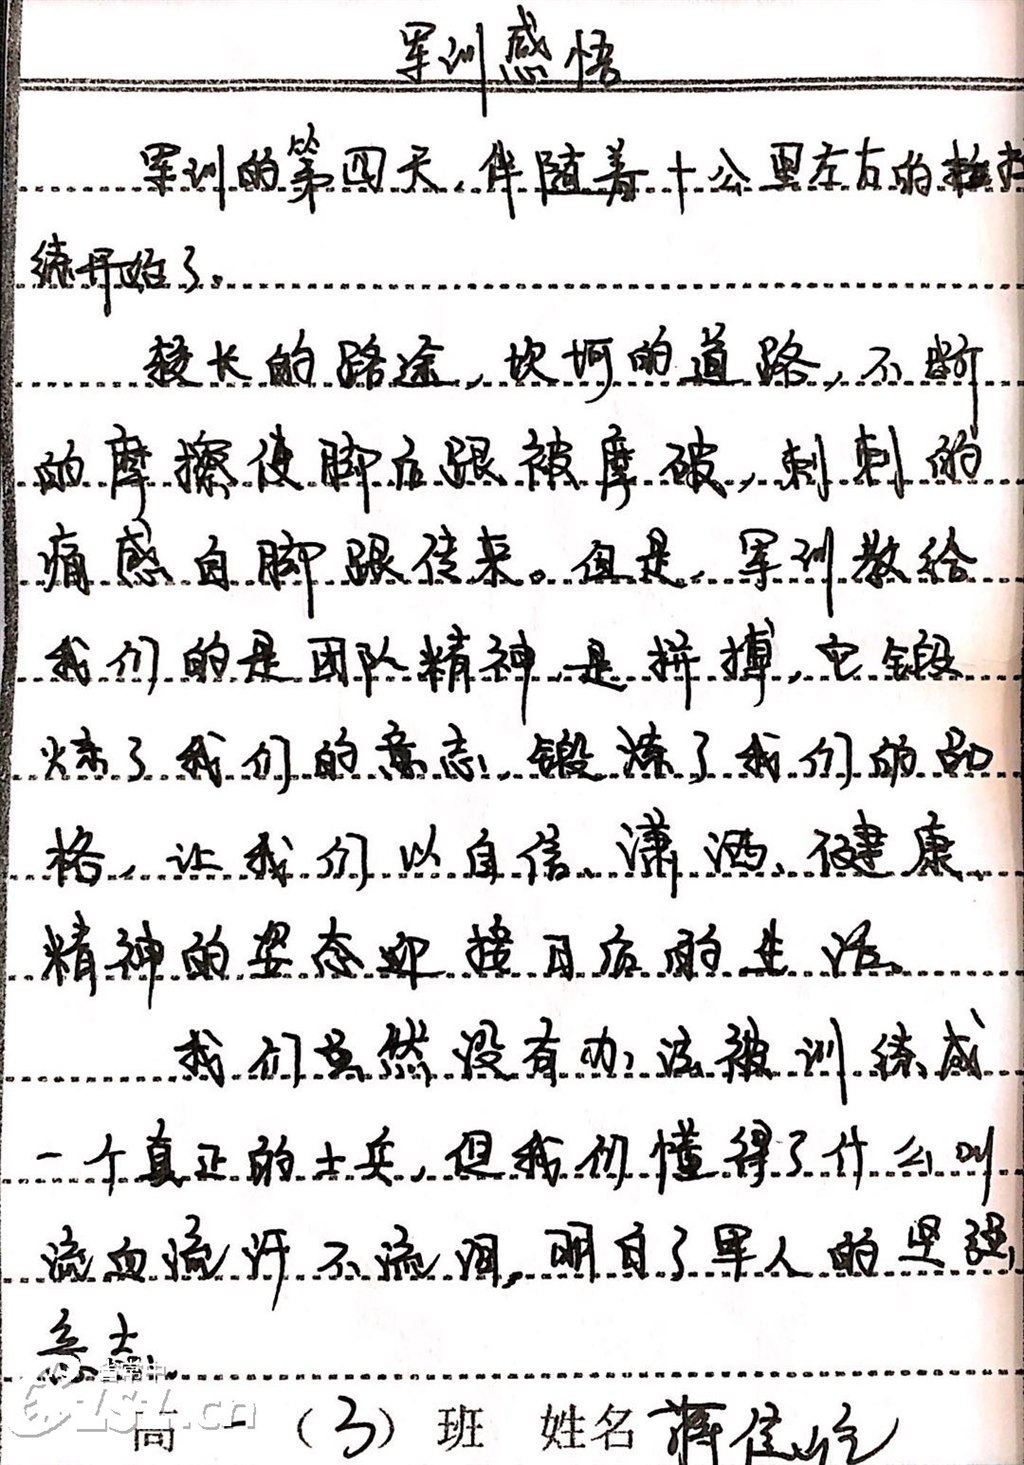 军训感悟
军训的第四天,伴随着十公里左右的拉
练开始了。
较长的路途,坎坷的道路,不断
的摩擦使脚后跟被摩破,刺刺的
痛感自脚跟传来。但是,军训教给
我们的是团队精神,是拼搏,它锻
炼了我们的意志,锻炼了我们的品
格,让我们以自信、潇洒、健康、
精神的姿态迎接日后的生活。
我们虽然没有办法被训练成
一个真正的士兵,但我们懂得了什么叫
流血流汗不流泪,明白了军人的坚强
意志
省常中
高一(3)班 姓名 蒋佳